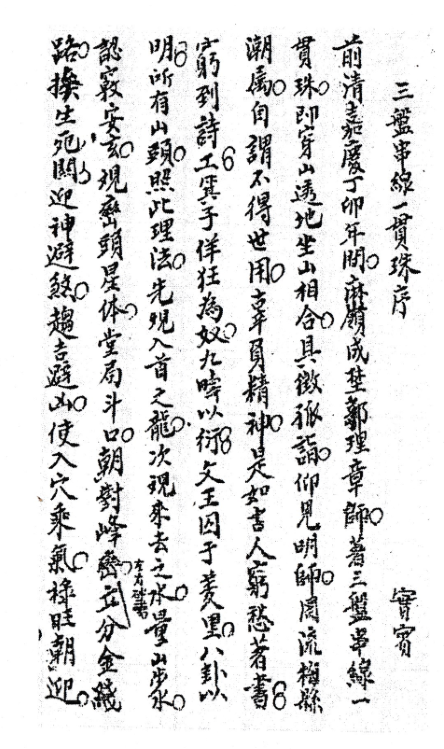 三盤串線一貫珠序　　實賓
前清嘉慶丁卯年間。麻嶺成埜鄒理章師。著三盤串線一
貫珠。即穿山透地坐山相合。具徵孤詣。仰見明師。周流梅縣
潮屬。自謂不得世用。古耳負精神。是如古人窮愁著書。
窮到詩工。箕子佯狂為奴。九疇以衍。文王囚于羑里。八卦以
明。所有山頭。照此理法。先覌入首之龍。次覌來去之水。量山步水。
認竅安玄。覌巒頭星体。堂局斗口。朝對峰巒。立分金綫
左右砂書
路。換生死關。迎神避煞。趨吉避凶。使入穴乘氣。祿旺朝迎。